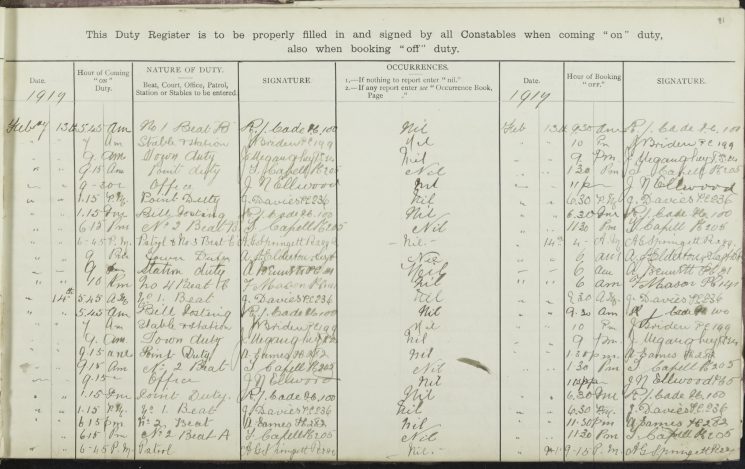 81
This Duty Register is to be properly filled in and signed by all Constables when coming "on" duty,
also when booking "off" duty.
Date. Hour of Coming "on" Duty. NATURE OF DUTY. Beat, Court, Office, Patrol, Station or Stables to be entered. SIGNATURE. OCCURRENCES. 1.—If nothing to report enter "nil." 2.—If any report enter see "Occurrence Book, Page ." Date. Hour of Booking "off." SIGNATURE.
1917 1917
Feby 13th 5.45 am No 1 Beat R. J. Cade Pc 100 Nil Feb 13th 9.30 am R. J. Cade Pc 100
" " 7 am Stable & station J Briden Pc 199 Nil " " 10 Pm J Briden Pc 199
" " 9 am Town duty Nil " " 9 Pm
" " 9.15 am Point duty T. Capell Pc 205 Nil " " 1.30 Pm T. Capell Pc 205
9-30 Office J N Ellwood Nil 11 pm J N Ellwood
" " 1.15 Point Duty J. Davies PC 236 Nil " " 6.30 J. Davies PC 236
" " 1.15 Pm Bill Posting R J Cade Pc 100 Nil " " 6.30 Pm R J Cade Pc 100
" " 6.15 Pm No 2 Beat B T. Capell Pc 205 Nil " " 11.30 Pm T. Capell Pc 205
" " 6-45 P.M. Patrol A G Springett - Nil - " 14th A G Springett
" " 9 Town Duty Nil " " 6 am
" " 9 Station duty A Bennett Pc Nil " " 6 am A Bennett Pc
" " 10 Pm No 4 Beat T Mason Nil " " 6 am T Mason
" 14th 5.45 No 1. Beat J. Davies PC 236 Nil " " J. Davies PC 236
" " 5.45 am Bill Posting R J Cade Pc 100 Nil " " 9.30 am Cade
" " 7 am Stable & station J Briden Pc 199 Nil " " 10 Pm J Briden Pc 199
" " 9 am Town duty Nil " " 9 Pm
" " 9.15 am Point Duty A James Pc 282 Nil " " 1.30 pm A James Pc 282
" " 9.15 Am No 2 Beat T. Capell Pc 205 Nil " " 1.30 Pm T. Capell Pc 205
9.15 Office J N Ellwood Nil J N Ellwood
" " 1.15 Pm Point Duty R J Cade Pc 100 Nil " " 6.30 Pm R J Cade Pc 100
" " 1.15 No 1. Beat J. Davies PC 236 Nil " " 6.30 J. Davies PC 236
" " 6.15 pm No 2. Beat A James Pc 282 Nil " " 11.30 pm A James Pc 282
" " 6.15 Pm No 2 Beat A T. Capell Pc 205 Nil " " 11.30 Pm T. Capell Pc 205
" " 6-45 P.M. Patrol A G Springett - Nil - " " 9-15 P.M. A G Springett